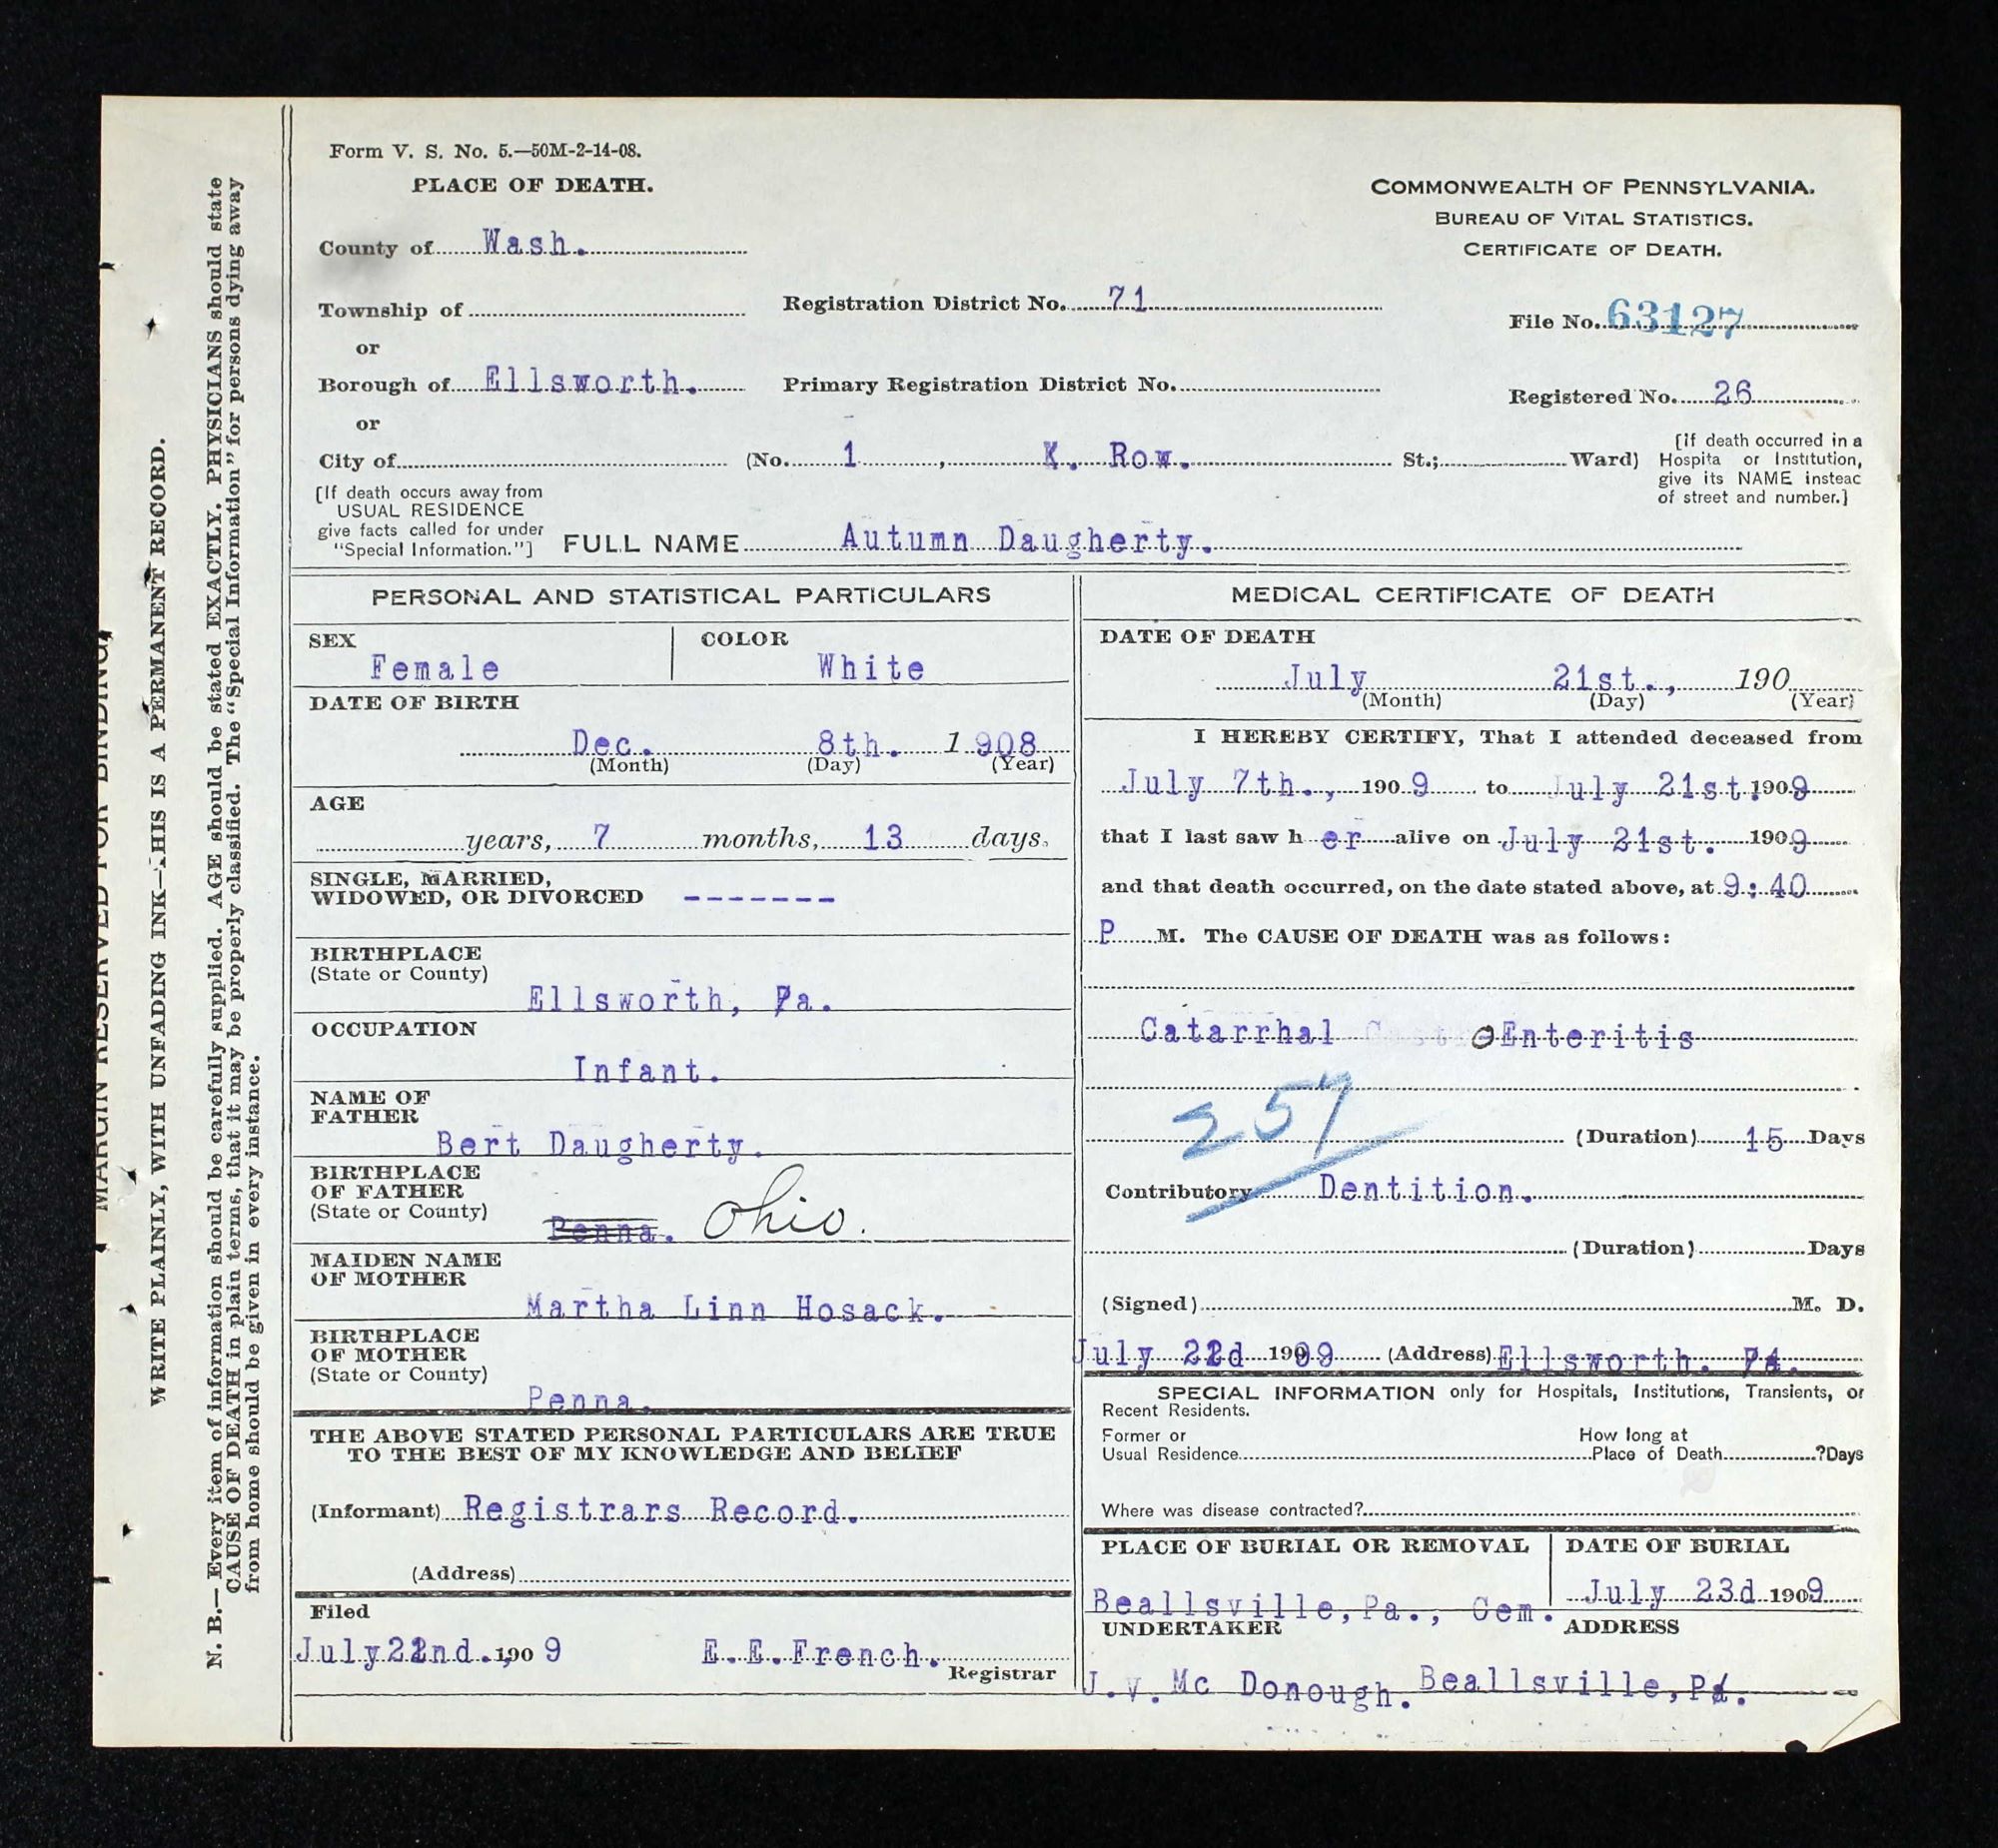 Form V. S. No. 5.—50M-2-14-08.
PLACE OF DEATH.
COMMONWEALTH OF PENNSYLVANIA.
BUREAU OF VITAL STATISTICS.
CERTIFICATE OF DEATH.
County of Wash.
Township of
Registration District No. 71
File No. 63127
or
Borough of Ellsworth.
Primary Registration District No.
Registered No. 26
or
City of (No. 1 , K. Row. St.; Ward)
[If death occurred in a
Hospita or Institution,
give its NAME insteac
of street and number.]
[If death occurs away from
USUAL RESIDENCE
give facts called for under
"Special Information."]
FULL NAME Autumn Daugherty.
PERSONAL AND STATISTICAL PARTICULARS
SEX
Female
COLOR
White
DATE OF BIRTH
Dec. 8th. 1 908
(Month) (Day) (Year)
AGE
years, 7 months, 13 days.
SINGLE, MARRIED,
WIDOWED, OR DIVORCED -------
BIRTHPLACE
(State or County)
Ellsworth, Pa.
OCCUPATION
Infant.
NAME OF
FATHER
Bert Daugherty.
BIRTHPLACE
OF FATHER
(State or County)
Penna. Ohio.
MAIDEN NAME
OF MOTHER
Martha Linn Hosack.
BIRTHPLACE
OF MOTHER
(State or County)
Penna.
THE ABOVE STATED PERSONAL PARTICULARS ARE TRUE
TO THE BEST OF MY KNOWLEDGE AND BELIEF
(Informant) Registrars Record.
(Address)
Filed
July 22nd., 190 9 E.E.French.
Registrar
MEDICAL CERTIFICATE OF DEATH
DATE OF DEATH
July 21st., 190
(Month) (Day) (Year)
I HEREBY CERTIFY, That I attended deceased from
July 7th., 190 9 to July 21st. 1909
that I last saw h er alive on July 21st. 1909
and that death occurred, on the date stated above, at 9:40
P M. The CAUSE OF DEATH was as follows:
Catarrhal Enteritis
257
(Duration) 15 Days
Contributory Dentition.
(Duration) Days
(Signed) M. D.
July 22d 1909 (Address) Ellsworth. Pa.
SPECIAL INFORMATION only for Hospitals, Institutions, Transients, or
Recent Residents.
Former or
Usual Residence
How long at
Place of Death ?Days
Where was disease contracted?
PLACE OF BURIAL OR REMOVAL
Beallsville, Pa., Cem.
DATE OF BURIAL
July 23d 1909
UNDERTAKER
J.V. Mc Donough.
ADDRESS
Beallsville, Pa.
MARGIN RESERVED FOR BINDING,
WRITE PLAINLY, WITH UNFADING INK—THIS IS A PERMANENT RECORD.
N. B.—Every item of information should be carefully supplied. AGE should be stated EXACTLY. PHYSICIANS should state
CAUSE OF DEATH in plain terms, that it may be properly classified. The "Special Information" for persons dying away
from home should be given in every instance.